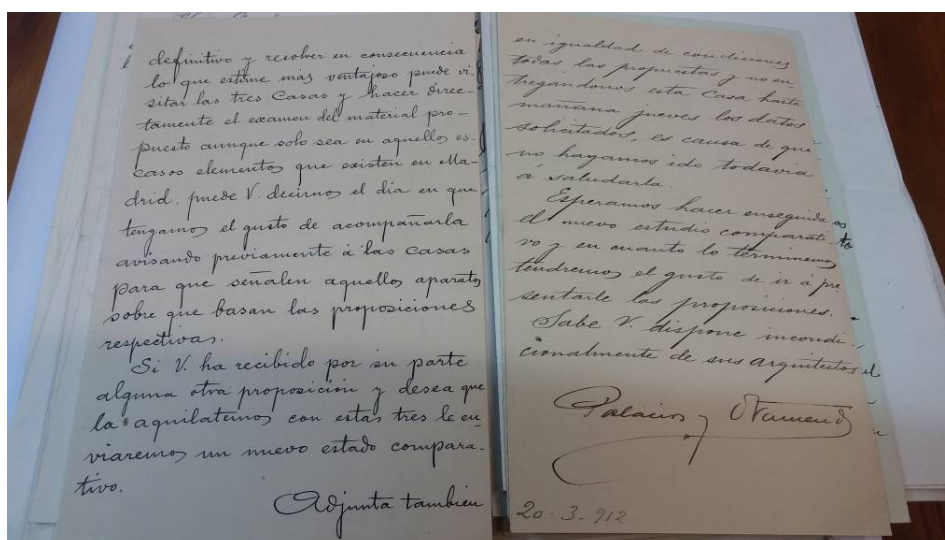 definitivo y resolver en consecuencia
lo que estime mas ventajoso puede vi-
sitar las tres Casas y hacer direc-
tamente el examen del material pro-
puesto aunque solo sea en aquellos es-
casos elementos que existen en Ma-
drid, puede V. decirnos el dia en que
tengamos el gusto de acompañarla
avisando previamente á las Casas
para que señalen aquellos aparatos
sobre que basan las proposiciones
respectivas.
Si V. ha recibido por su parte
alguna otra proposición y desea que
la aquilatemos con estas tres le en-
viaremos un nuevo estado compara-
tivo.
Adjunta tambien
en igualdad de condiciones
todas las propuestas y no en-
tregandonos esta Casa hasta
mañana jueves los datos
solicitados, es causa de que
no hayamos ido todavia
a saludarla.
Esperamos hacer enseguida
el nuevo estudio comparati-
vo y en cuanto lo terminemos
tendremos el gusto de ir á pre-
sentarle las proposiciones.
Sabe V. dispone incondi-
cionalmente de sus arquitectos
Palacios y Otamendi
20-3-912